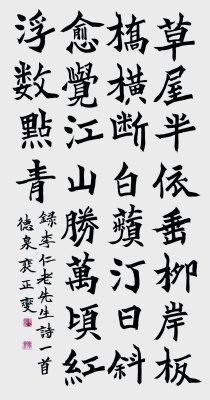 草屋半依垂柳岸板
橋橫断白蘋汀日斜
愈覺江山勝萬頃紅
浮数點青
錄李仁老先生詩一首
德泉裵正燮